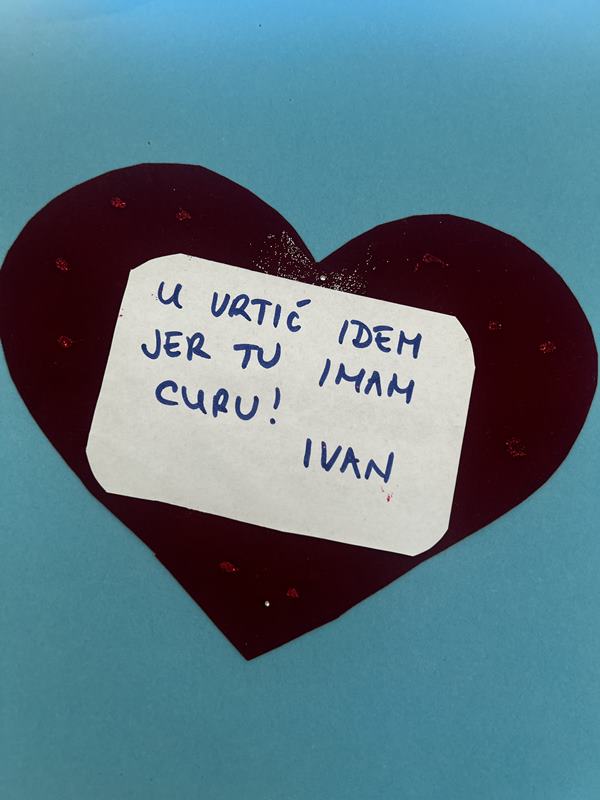 U VRTIĆ IDEM
JER TU IMAM
CURU!
IVAN